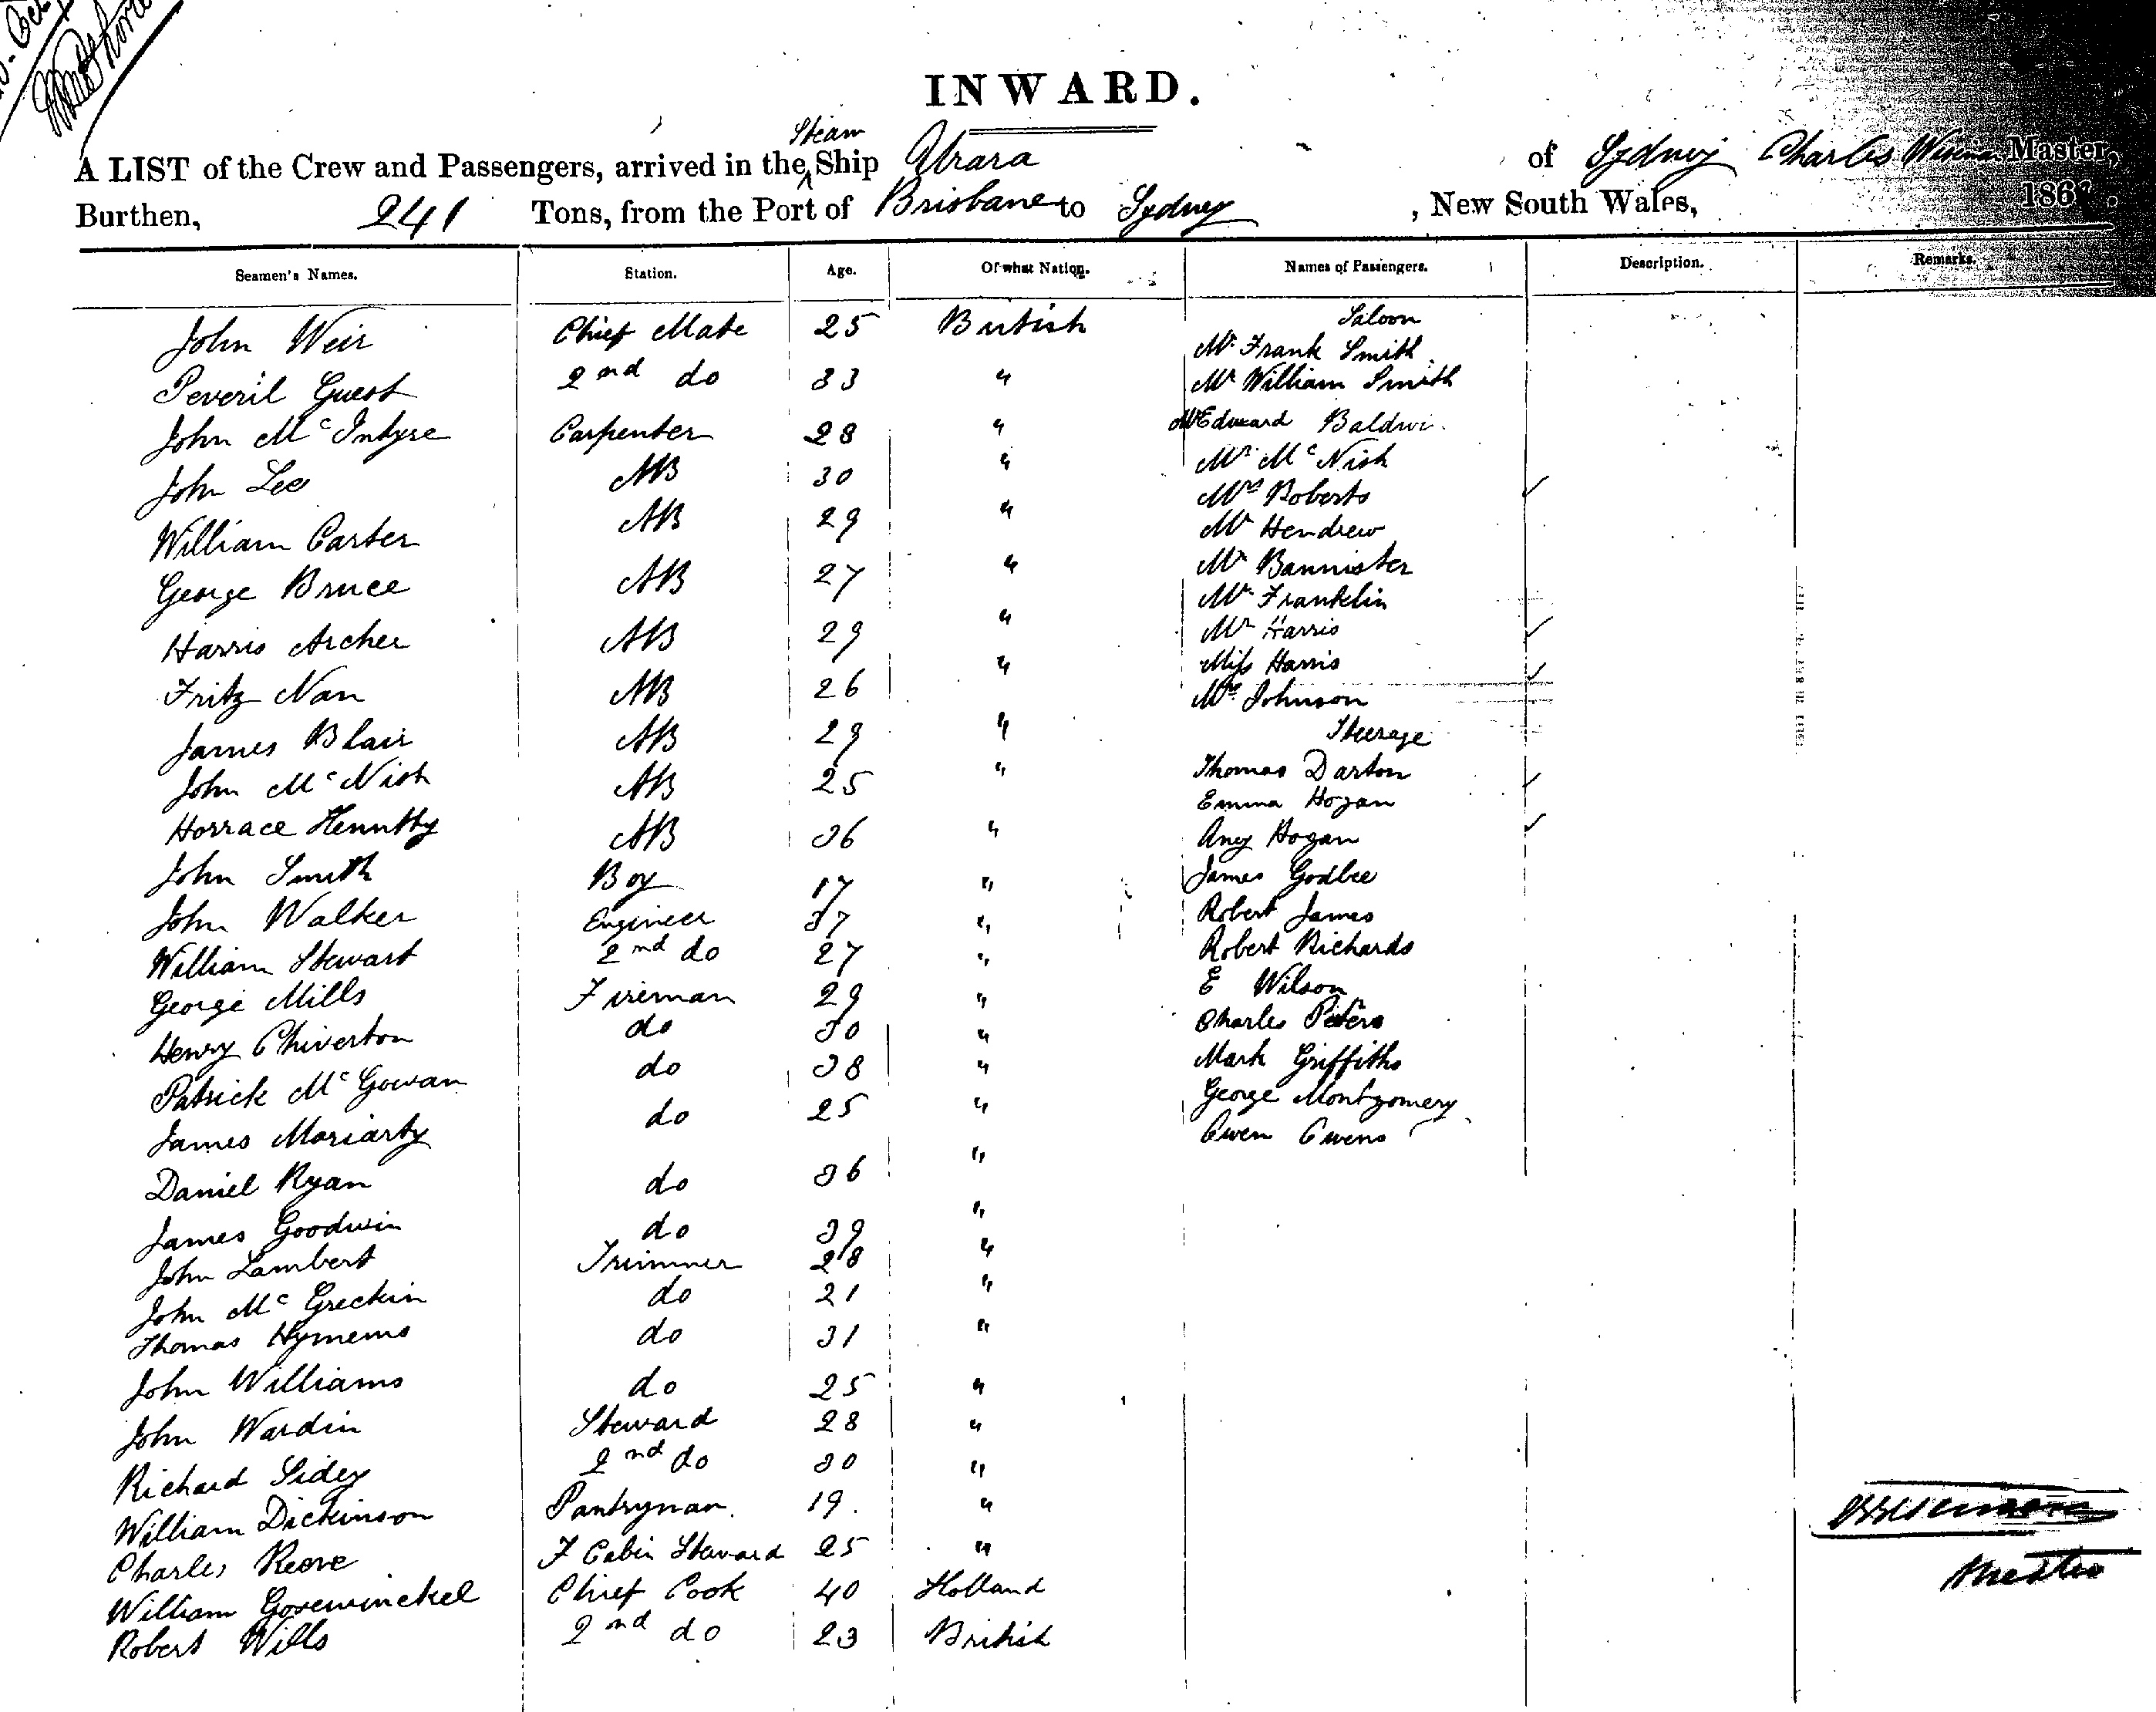 INWARD.
A LIST of the Crew and Passengers, arrived in the Steam Ship Urara of Sydney Charles Master,
Burthen, 241 Tons, from the Port of Brisbane to Sydney , New South Wales, 186 .
Seamen's Names. Station. Age. Of what Nation. Names of Passengers. Description. Remarks.
Saloon
John Weir Chief Mate 25 British Mr Frank Smith
Peveril Guest 2nd do 33 " Mr William Smith
John McIntyre Carpenter 28 " Mr Edward Baldwin
John Lee AB 30 " Mr McNish
William Carter AB 29 " Mrs Roberts
George Bruce AB 27 " Mr Hendrew
Harris Archer AB 29 " Mr Bannister
Fritz Nan AB 26 " Mr Franklin
James Blair AB 29 " Mr Harris
John McNish AB 25 " Miss Harris
Horrace AB 36 " Mrs Johnson
John Smith Boy 17 " Steerage
John Walker Engineer 37 " Thomas Darton
William Stewart 2nd do 27 " Emma Hogan
George Mills Fireman 29 " Any Hogan
Henry Chiverton do 30 " James Godbee
Patrick McGowan do 38 " Robert James
James Moriarty do 25 " Robert Richards
Daniel Ryan do 36 " E Wilson
James Goodwin do 39 " Charles Peters
John Lambert Trimmer 28 " Mark Griffiths
John McGreckin do 21 " George Montgomery
Thomas Hymems do 31 " Owen Owens
John Williams do 25 "
John Wardin Steward 28 "
Richard Sidey 2nd do 30 "
William Dickinson Pantryman 19. "
Charles Reeve F Cabin Steward 25 "
William Govewinckel Chief Cook 40 Holland
Robert Wills 2nd do 23 British
Master